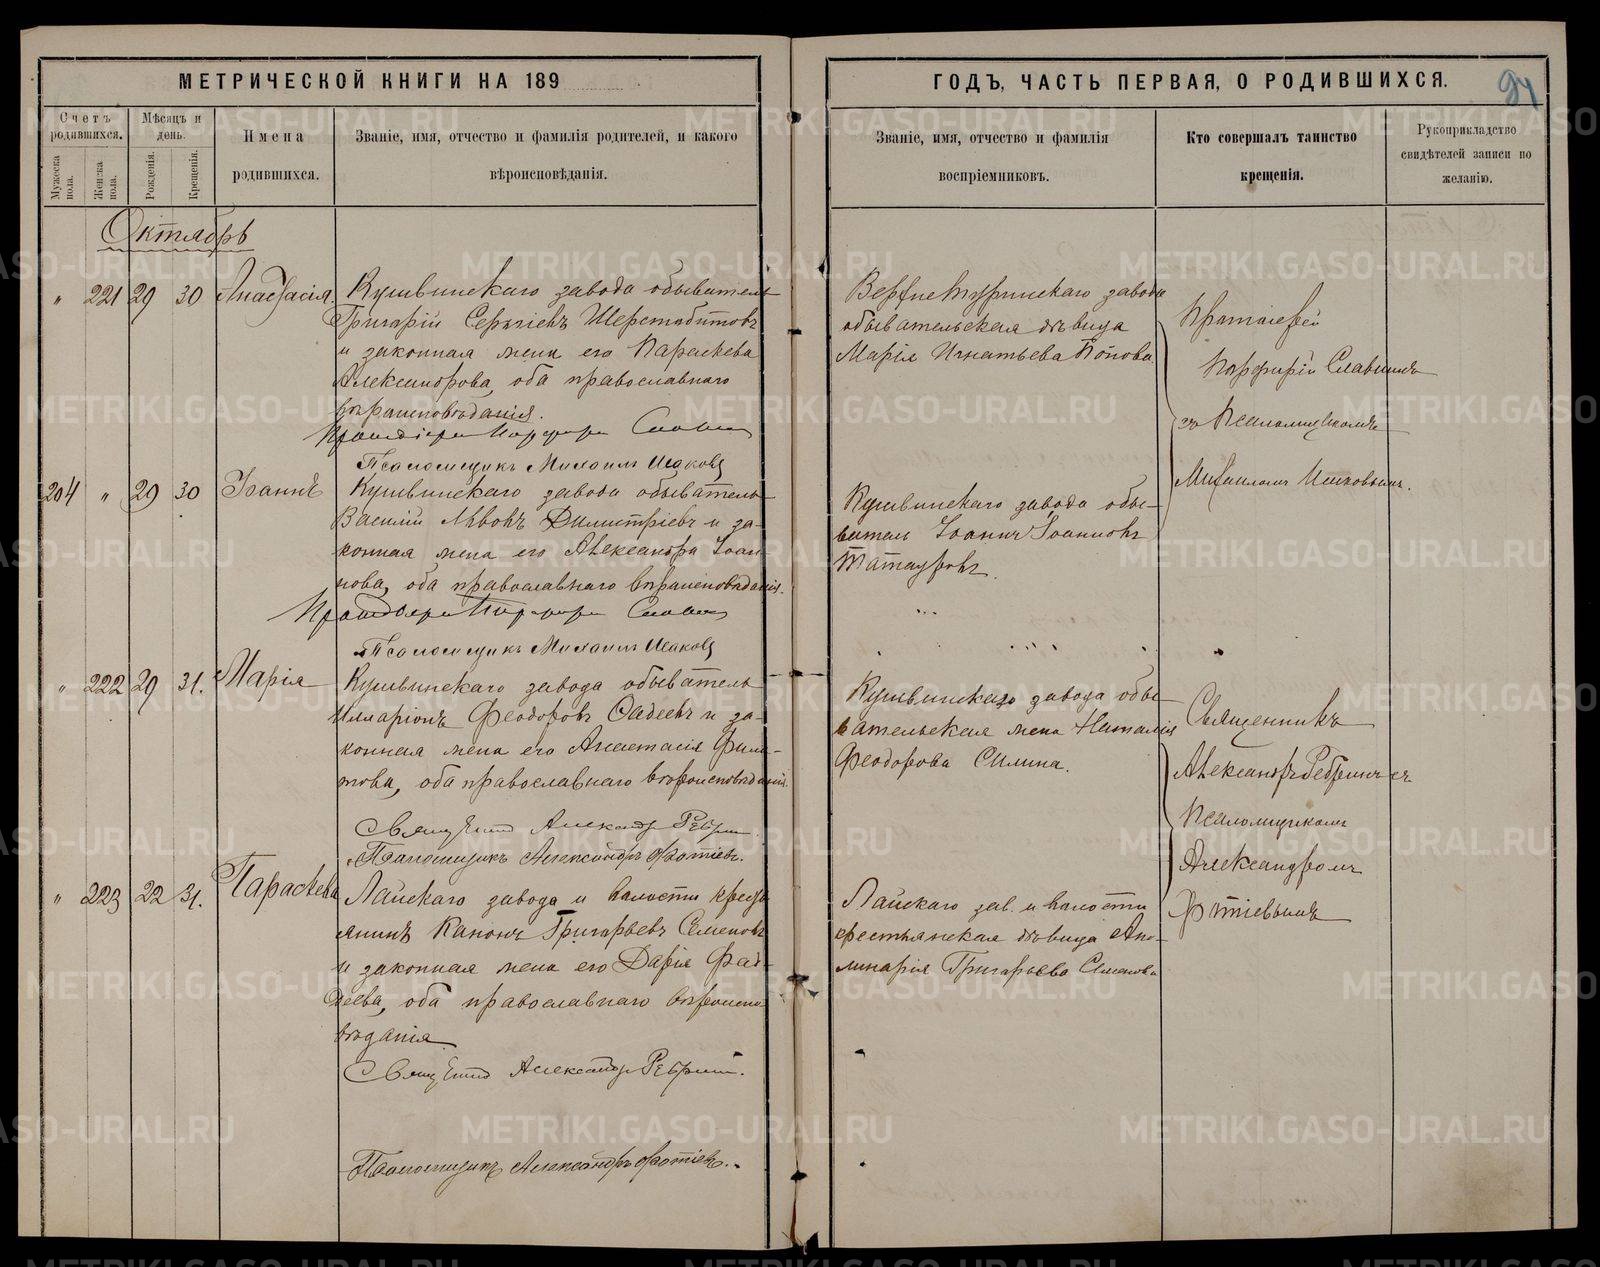 МЕТРИЧЕСКОЙ КНИГИ НА 189
ГОДЪ, ЧАСТЬ ПЕРВАЯ, О РОДИВШИХСЯ.
94
Счетъ родившихся.
Мѣсяцъ и день.
Мужеска пола.
Женска пола.
Рожденія.
Крещенія.
Имена родившихся.
Званіе, имя, отчество и фамилія родителей, и какого
вѣроисповѣданія.
Званіе, имя, отчество и фамилія
воспріемниковъ.
Кто совершалъ таинство
крещенія.
Рукоприкладство
свидѣтелей записи по
желанію.
Октябрь
" 221 29 30 Анастасія
Кушвинскаго завода обыватель
Григорій Сергіевъ Шерстобитовъ
и законная жена его Параскева
Александрова, оба православнаго
вѣроисповѣданія.
Протоіерей Порфирій Славнинъ
Псаломщикъ Михаилъ Исаковъ
Верхнетуринскаго завода
обывательская дѣвица
Марія Игнатьева Попова
Протоіерей
Порфирій Славнинъ
съ Псаломщикомъ
Михаиломъ Исаковымъ.
204 " 29 30 Іоаннъ
Кушвинскаго завода обыватель
Василій Львовъ Димитріевъ и за-
конная жена его Александра Іоан
нова, оба православнаго вѣроисповѣданія.
Протоіерей Порфирій Славнинъ
Псаломщикъ Михаилъ Исаковъ
Кушвинскаго завода обы-
ватель Іоаннъ Іоанновъ
Татауровъ.
" 222 29 31. Марія
Кушвинскаго завода обыватель
Илларіонъ Феодоровъ Фадеевъ и за-
конная жена его Анастасія Фила
това, оба православнаго вѣроисповѣданія.
Священникъ Александръ
Псаломщикъ Александръ Фотіевъ.
Кушвинскаго завода обы-
вательская жена Наталія
Феодорова Силина.
Священникъ
Александръ съ
Псаломщикомъ
Александромъ
Фотіевымъ
" 223 22 31. Параскева
Лайскаго завода и волости кресть
янинъ Кононъ Григорьевъ Семеновъ
и законная жена его Дарія Фад-
деева, оба православнаго вѣроиспо-
вѣданія
Священникъ Александръ
Псаломщикъ Александръ Фотіевъ.
Лайскаго зав. и волости
крестьянская дѣвица Апо-
линарія Григорьева Семенова
METRIKI.GASO-URAL.RU